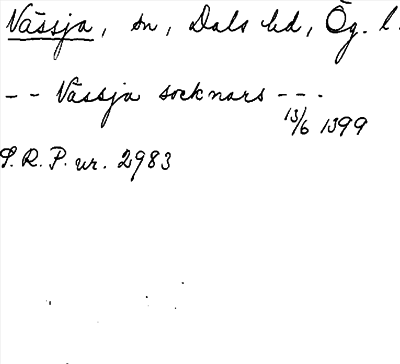 Vässja, sn, Dals hd, Ög. l.
- - Vässja socknars - - -
13/6 1399
S. R. P. nr. 2983